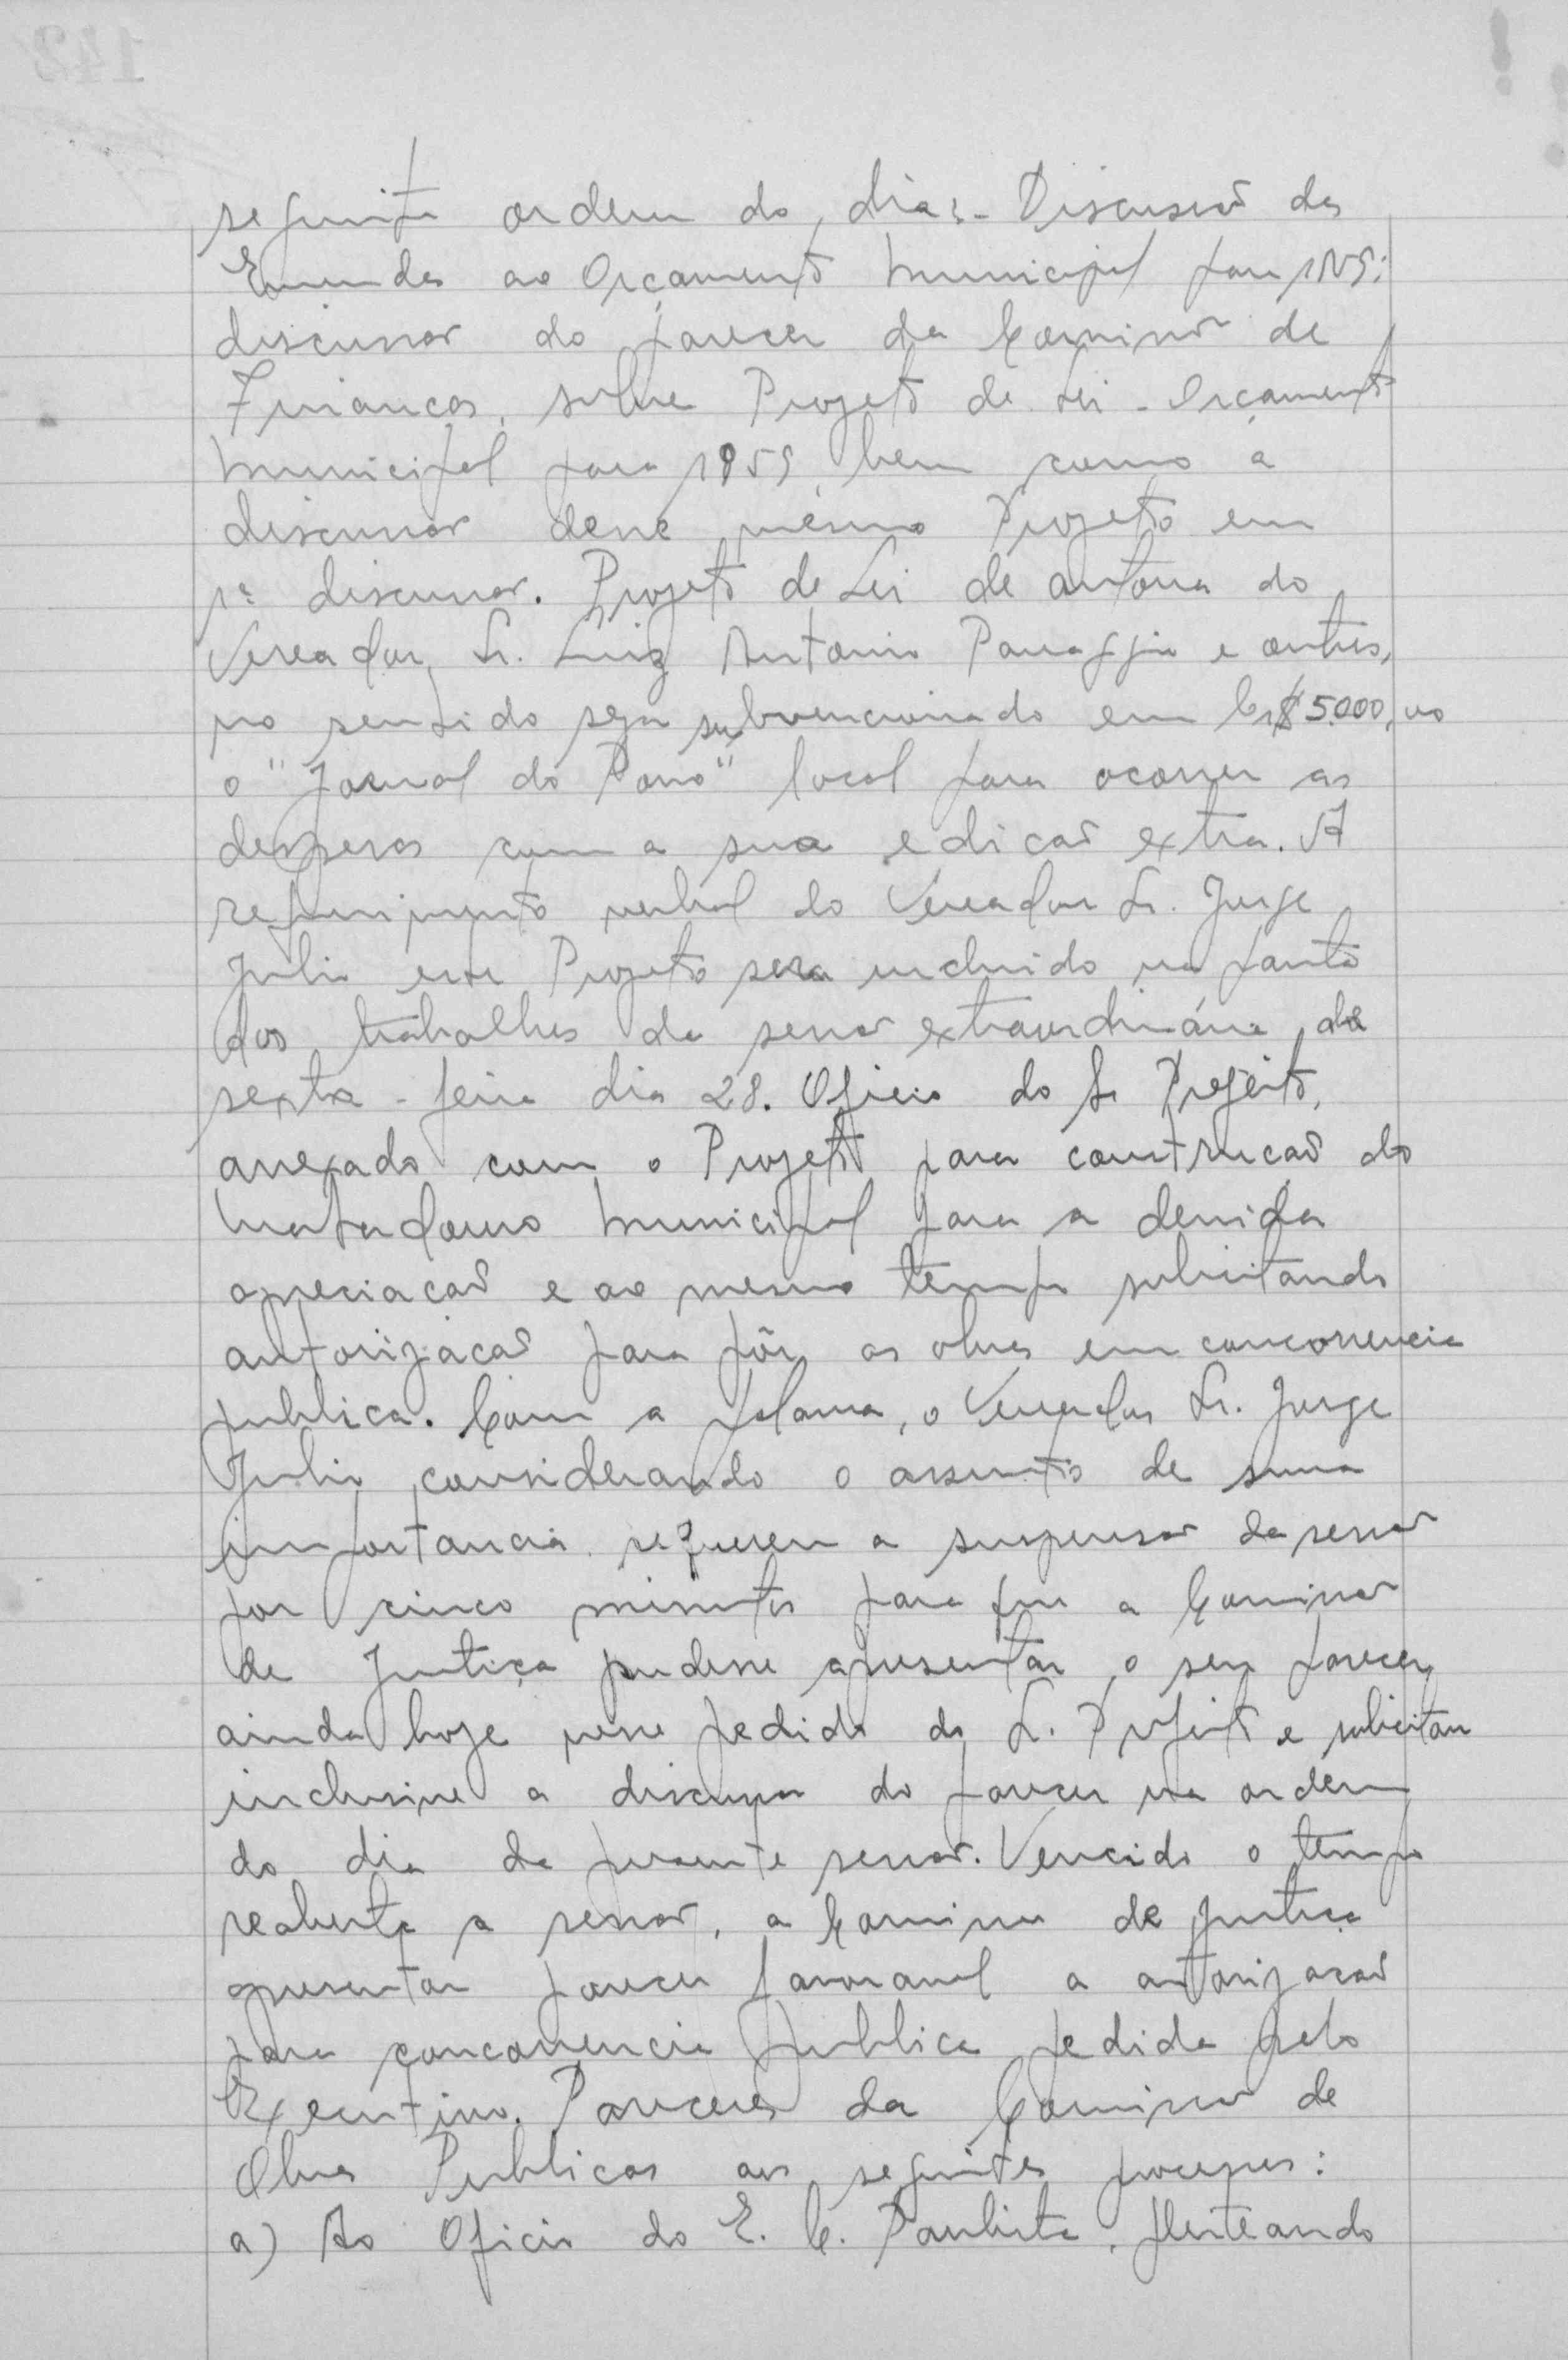 seguinte ordem do dia:- Discussão das
Emendas ao Orçamento Municipal para 1959;
discussão do parecer da Comissão de
Finanças, sobre Projeto de Lei - Orçamento
Municipal para 1959, bem como a
discussão desse mesmo Projeto em
1ª discussão. Projeto de Lei de autoria do
Vereador Sr. Luiz Antonio Panaggio e outros,
no sentido seja subvencionado em Cr$ 5.000,00
o "Jornal do Povo" local para ocorrer as
despesas com a sua edicão extra. A
requerimento verbal do Vereador Sr. Jorge
Julio este Projeto sera incluido na pauta
dos trabalhos da sessão extraordinária da
sexta-feira dia 28. Oficio do Sr Prefeito,
anexado com o Projeto para construcão do
Matadouro Municipal para a devida
apreciacão e ao mesmo tempo solicitando
autorizacão para pôr as obras em concorrencia
publica. Com a palavra, o Vereador Sr. Jorge
Julio considerando o assunto de suma
importancia requereu a suspensão da sessão
por cinco minutos para que a Comissão
de Justiça pudesse apresentar o seu parecer
ainda hoje nesse pedido do Sr. Prefeito e solicitou
inclusive a discussão do parecer na ordem
do dia da presente sessão. Vencido o tempo
reaberta a sessão, a Comissão de Justiça
apresentou parecer favoravel a autorizacão
para concorrencia publica pedida pelo
Executivo. Pareceres da Comissão de
Obras Publicas aos seguintes processos:
a) Ao Oficio do E. C. Paulista, pleiteando